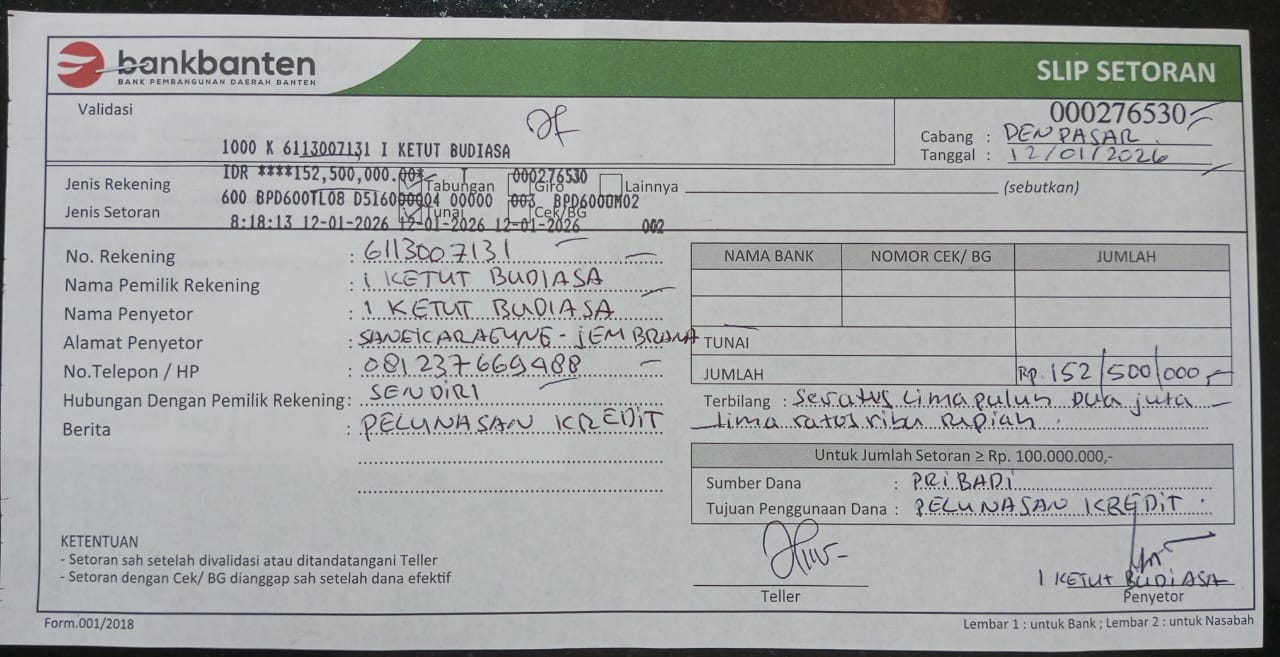 bankbanten
BANK PEMBANGUNAN DAERAH BANTEN
SLIP SETORAN
Validasi
000276530
Cabang : DENPASAR
Tanggal : 12/01/2026
1000 K 6113007131 I KETUT BUDIASA
IDR ****152,500,000.00* 000276530
Jenis Rekening Tabungan Giro Lainnya (sebutkan)
600 BPD600TL08 D516000004 00000 003 BPD6000M02
Jenis Setoran Tunai Cek/BG
8:18:13 12-01-2026 12-01-2026 12-01-2026 002
No. Rekening : 6113007131
Nama Pemilik Rekening : I KETUT BUDIASA
Nama Penyetor : I KETUT BUDIASA
Alamat Penyetor : SANGKARAGUNG - JEMBRANA
No.Telepon / HP : 081237669488
Hubungan Dengan Pemilik Rekening: SENDIRI
Berita : PELUNASAN KREDIT
NAMA BANK NOMOR CEK/ BG JUMLAH
TUNAI
JUMLAH Rp. 152/500/000,-
Terbilang : Seratus Lima puluh Dua juta
Lima ratus ribu Rupiah.
Untuk Jumlah Setoran ≥ Rp. 100.000.000,-
Sumber Dana : PRIBADI
Tujuan Penggunaan Dana : PELUNASAN KREDIT
KETENTUAN
- Setoran sah setelah divalidasi atau ditandatangani Teller
- Setoran dengan Cek/ BG dianggap sah setelah dana efektif
Teller
I KETUT BUDIASA
Penyetor
Form.001/2018
Lembar 1 : untuk Bank ; Lembar 2 : untuk Nasabah